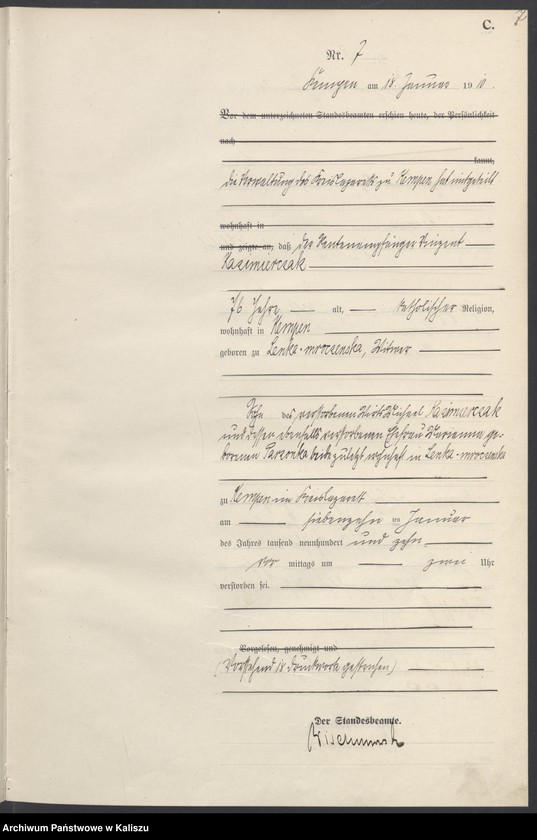 7
C.
Nr. 7
Kempen am 18. Januar 1910.
Vor dem unterzeichneten Standesbeamten erschien heute, der Persönlichkeit
nach
kannt,
die Verwaltung des Kreislazaretts zu Kempen hat mitgeteilt
wohnhaft in
und zeigte an, daß der Rentenempfänger Vinzent
Kazimierczak
76 Jahre alt, katholischer Religion,
wohnhaft in Kempen
geboren zu Lenka-mroczenska, Witwer
Sohn des verstorbenen Wirts Michael Kazimierczak
und dessen ebenfalls verstorbenen Ehefrau Marianna ge-
borenen Parzonka beide zuletzt wohnhaft in Lenka-mroczenska
zu Kempen im Kreislazarett
am siebenzehn ten Januar
des Jahres tausend neunhundert und zehn
vor mittags um zwei Uhr
verstorben sei.
Vorgelesen, genehmigt und
(Vorstehend 18 Druckworte gestrichen)
Der Standesbeamte.
Archiwum Państwowe w Kaliszu